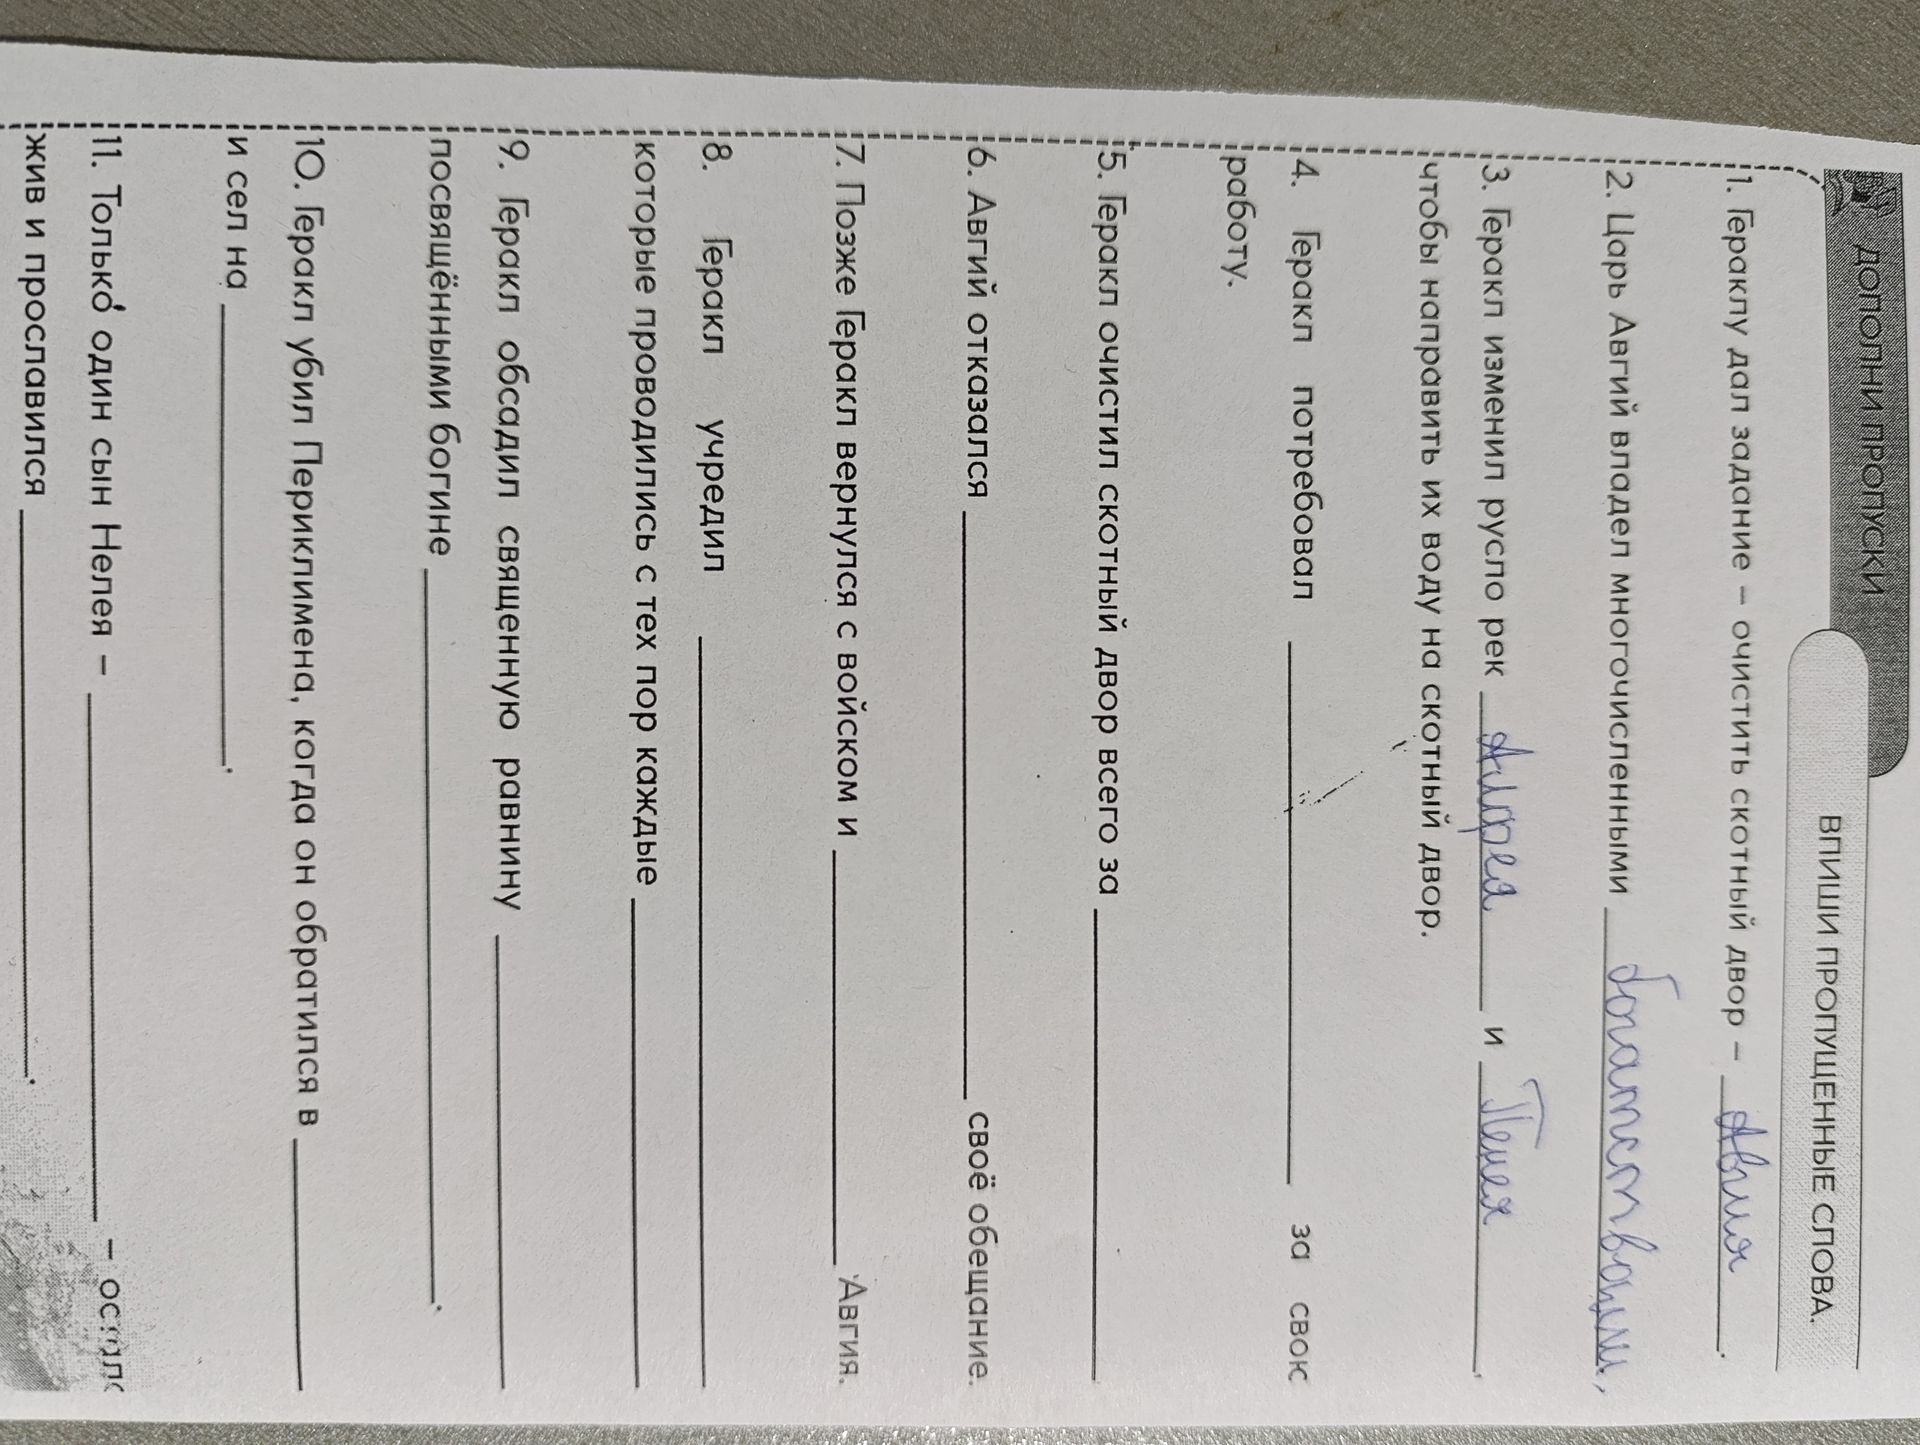 ДОПОЛНИ ПРОПУСКИ
ВПИШИ ПРОПУЩЕННЫЕ СЛОВА.
1. Гераклу дал задание – очистить скотный двор – Авгия.
2. Царь Авгий владел многочисленными богатствами,
3. Геракл изменил русло рек Алфея и Пенея,
чтобы направить их воду на скотный двор.
4. Геракл потребовал ____ за свою
работу.
5. Геракл очистил скотный двор всего за ____
6. Авгий отказался ____ своё обещание.
7. Позже Геракл вернулся с войском и ____ Авгия.
8. Геракл учредил ____
которые проводились с тех пор каждые ____
9. Геракл обсадил священную равнину ____
посвящёнными богине ____.
10. Геракл убил Периклимена, когда он обратился в ____
и сел на ____.
11. Только один сын Нелея – ____ –
жив и прославился ____.